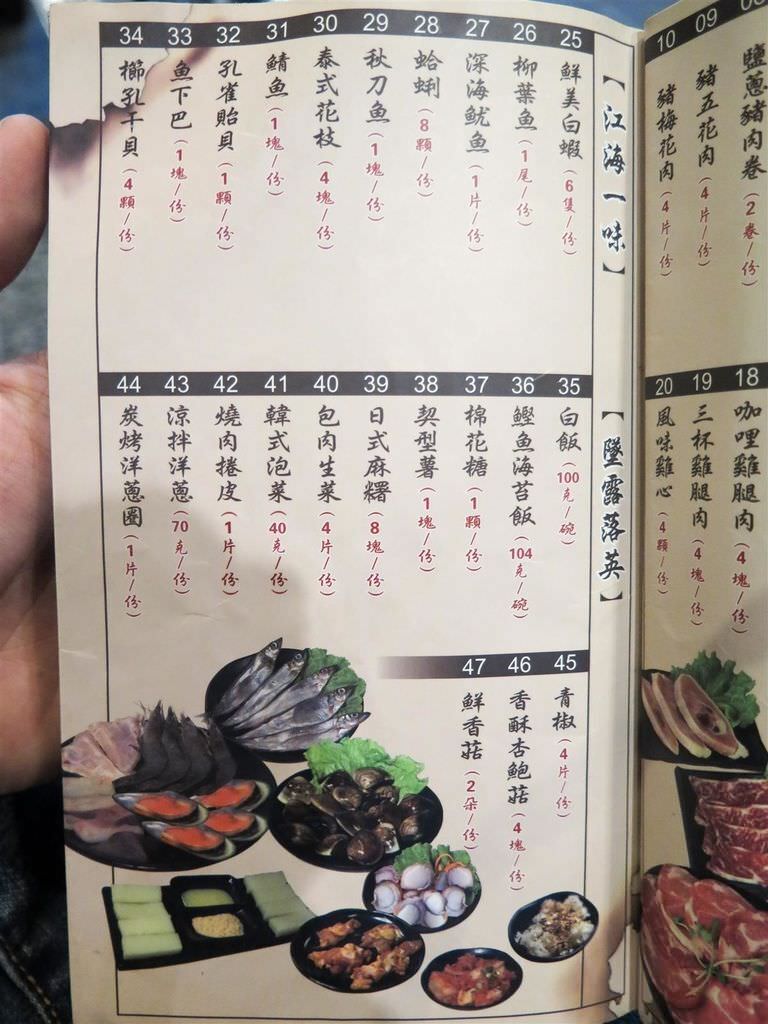 08
鹽蔥豬肉卷(2卷/份)
09
豬五花肉(4片/份)
10
豬梅花肉(4片/份)
18
咖哩雞腿肉(4塊/份)
19
三杯雞腿肉(4塊/份)
20
風味雞心(4顆/份)
【江海一味】
25
鮮美白蝦(6隻/份)
26
柳葉魚(1尾/份)
27
深海魷魚(1片/份)
28
蛤蜊(8顆/份)
29
秋刀魚(1塊/份)
30
泰式花枝(4塊/份)
31
鯖魚(1塊/份)
32
孔雀貽貝(1顆/份)
33
魚下巴(1塊/份)
34
櫛孔干貝(4顆/份)
【墜露落英】
35
白飯(100克/碗)
36
鰹魚海苔飯(104克/碗)
37
棉花糖(1顆/份)
38
契型薯(1塊/份)
39
日式麻糬(8塊/份)
40
包肉生菜(4片/份)
41
韓式泡菜(40克/份)
42
燒肉捲皮(1片/份)
43
涼拌洋蔥(70克/份)
44
炭烤洋蔥圈(1片/份)
45
青椒(4片/份)
46
香酥杏鮑菇(4塊/份)
47
鮮香菇(2朵/份)